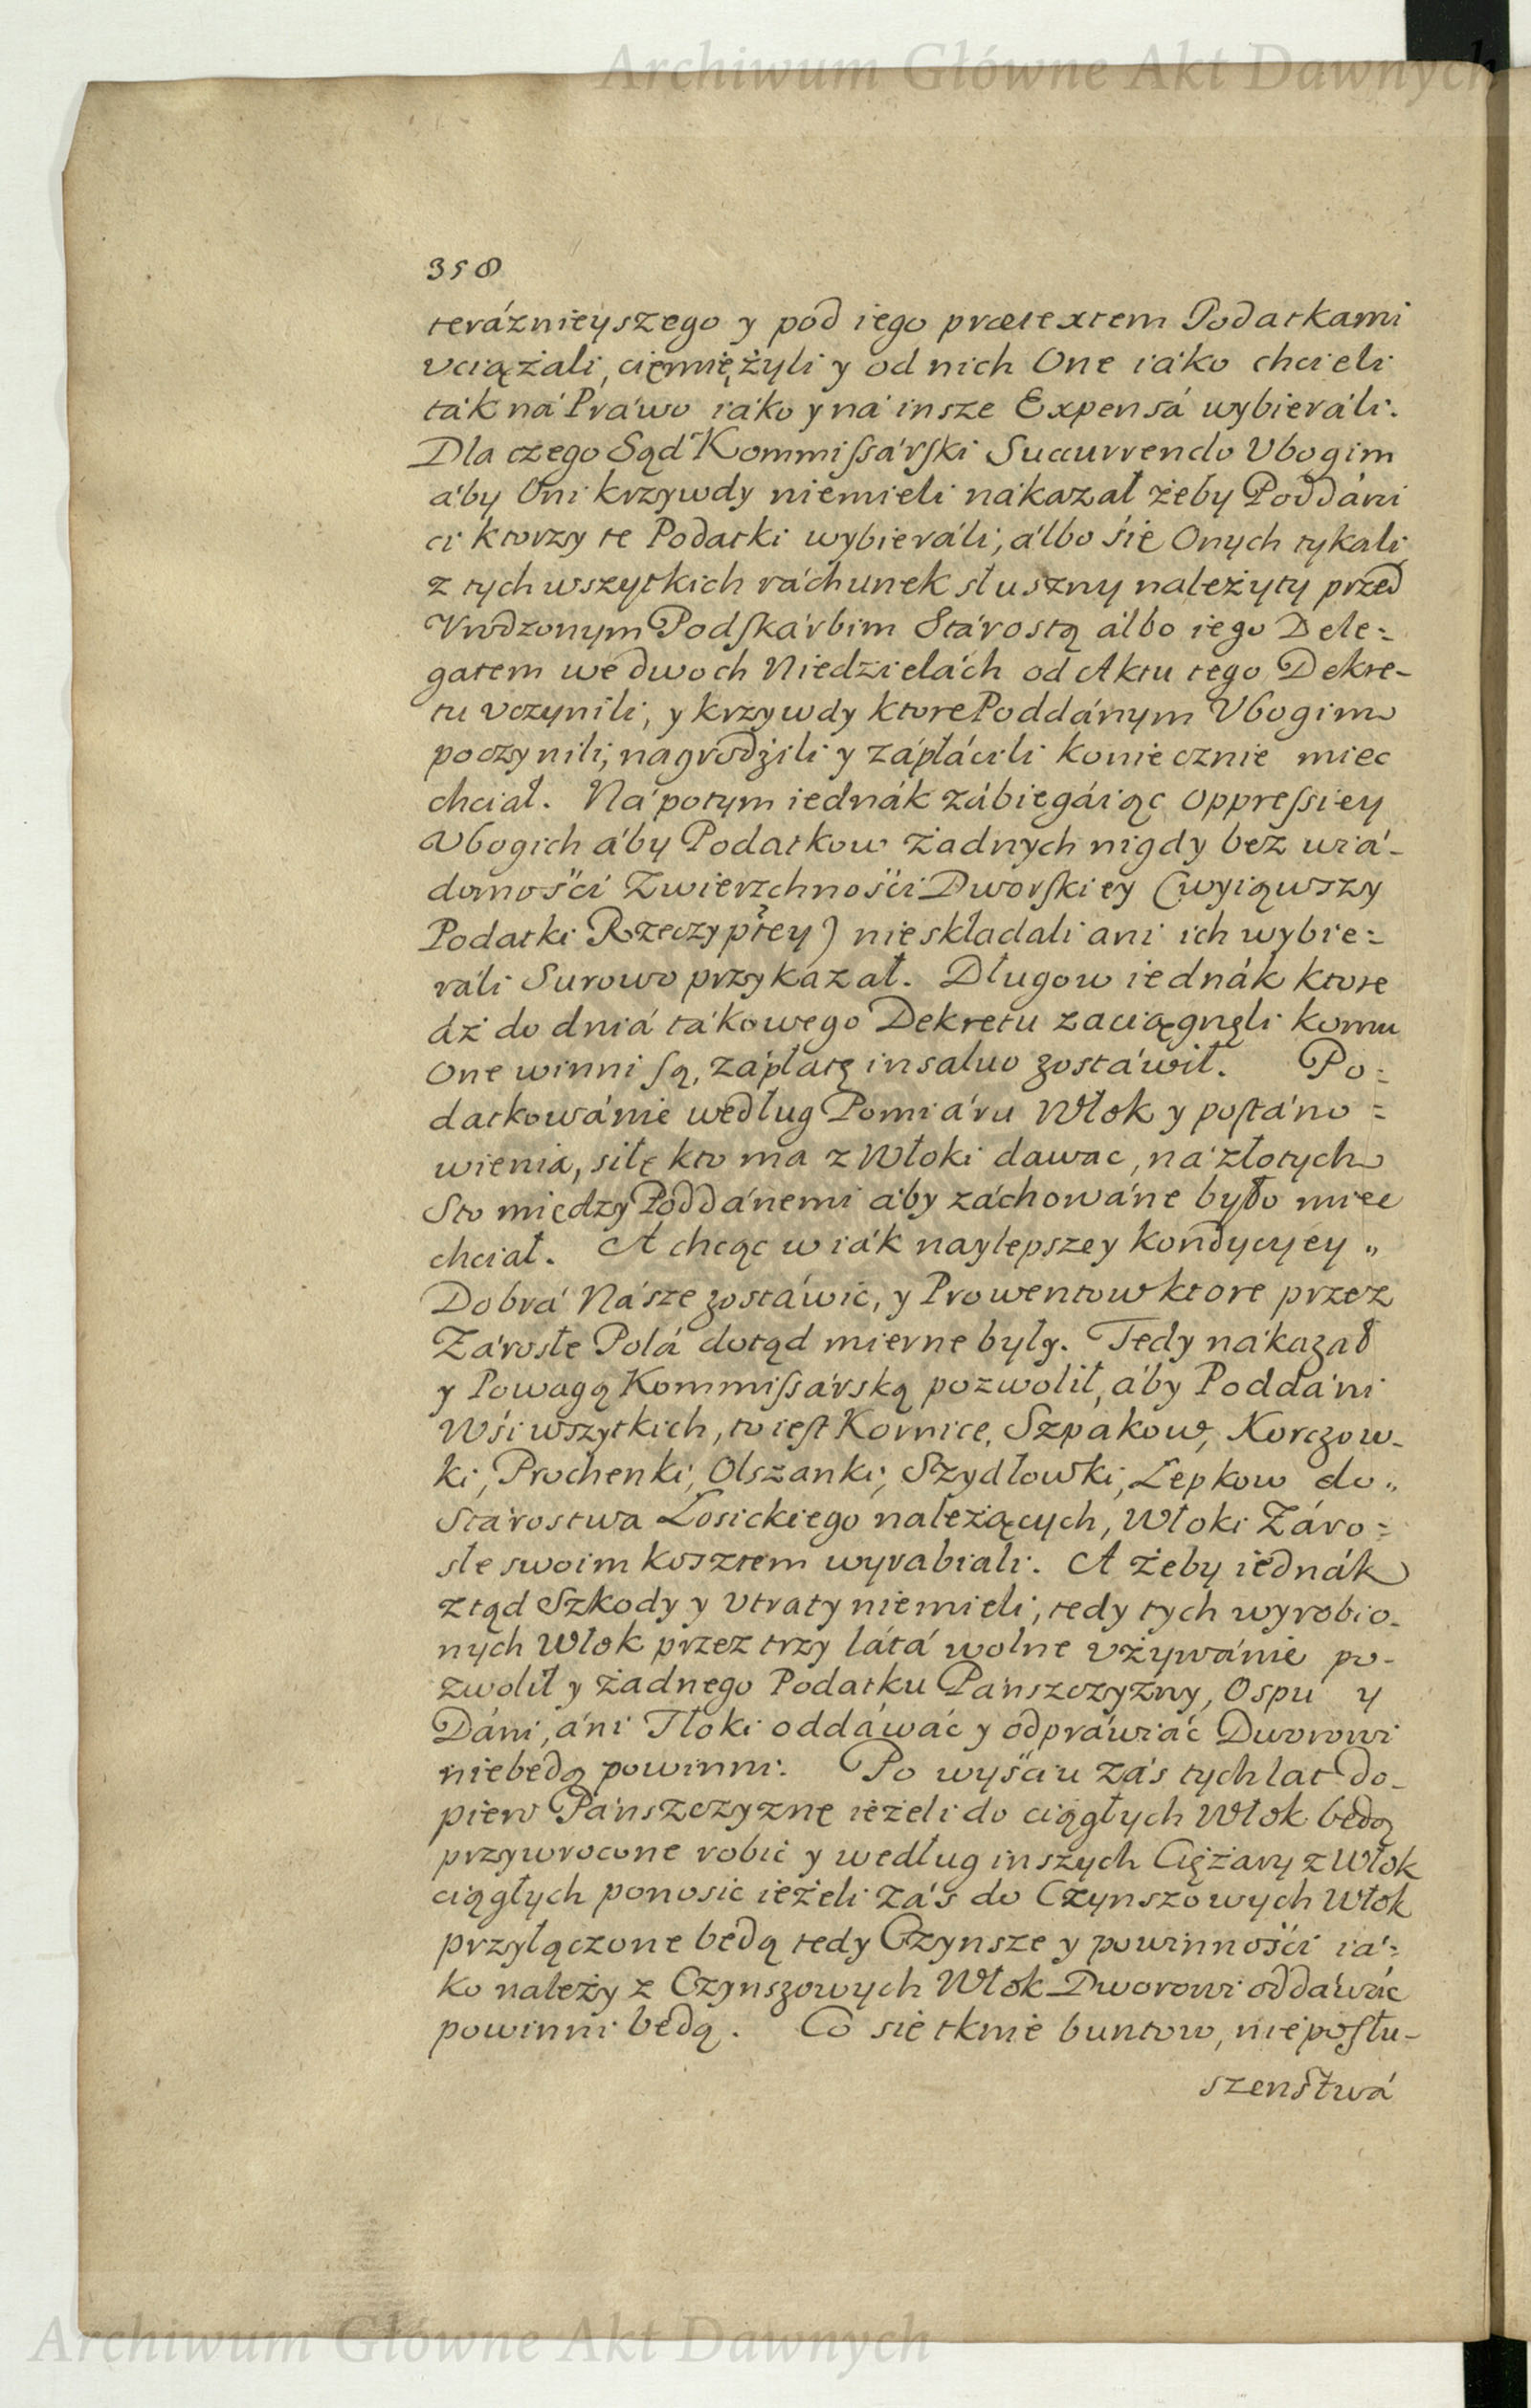 Archiwum Główne Akt Dawnych
358
teráznieyszego y pod iego prætextem Podatkami
vciążali, ciemiężyli y od nich One iáko chcieli
ták ná Práwo iáko y ná insze Expensá wybieráli.
Dla czego Sąd Kommissárski Succurrendo Vbogim
áby Oni krzywdy niemieli nákazał żeby Poddáni
ci ktorzy te Podatki wybieráli, álbo się Onych tykali
z tych wszytkich ráchunek słuszny należyty przed
Vrodzonym Podskárbim Stárostą álbo iego Dele=
gatem we dwoch Niedzielách od Aktu tego Dekre-
tu vczynili, y krzywdy ktore Poddánym Vbogim
poczynili, nagrodźili y zápłácili koniecznie miec
chciał. Ná potym iednák zábiegáiąc oppressiey
Vbogich áby Podatkow żadnych nigdy bez wiá-
domości Zwierzchności Dworskiey (wyiąwszy
Podatki Rzeczyptey) nieskładali ani ich wybie=
ráli Surowo przykazał. Długow iednák ktore
dź do dniá tákowego Dekretu zaciągnęli komu
One winni są, zápłatę in salvo zostáwił. Po=
datkowánie według Pomiáru Włok y postáno=
wienia, siłę kto ma z Włoki dawac, ná złotych
Sto między Poddánemi áby záchowáne było miec
chciał. A chcąc w iák naylepszey kondycyey „
Dobrá Násze zostáwić, y Prowentow ktore przez
Zárosłe Polá dotąd mierne były. Tedy nákazał
y Powagą Kommissárską pozwolił, áby Poddáni
Wśi wszytkich, to iest Kornice, Szpakow, Korczow-
ki, Prochenki, Olszanki, Szydłowki, Łepkow do „
Stárostwa Łosickiego należących, Włoki Záro=
słe swoim kosztem wyrabiali. A żeby iednák
ztąd Szkody y vtraty niemieli, tedy tych wyrobio-
nych Włok przez trzy látá wolne vżywánie po-
zwolił y żadnego Podatku Páńszczyzny, Ospu y
Dáni, áni Tłoki oddáwáć y odpráwiáć Dworowi
niebędą powinni. Po wyściu záś tych lat do-
piero Páńszczyznę ieżeli do ciągłych Włok będą
przywrocone robić y według inszych Ciężary z Włok
ciągłych ponosic ieżeli záś do Czynszowych Włok
przyłączone będą tedy Czynsze y powinności iá=
ko należy z Czynszowych Włok Dworowi oddáwác
powinni będą. Co się tknie buntow, nieposłu-
szeństwá
Archiwum Główne Akt Dawnych